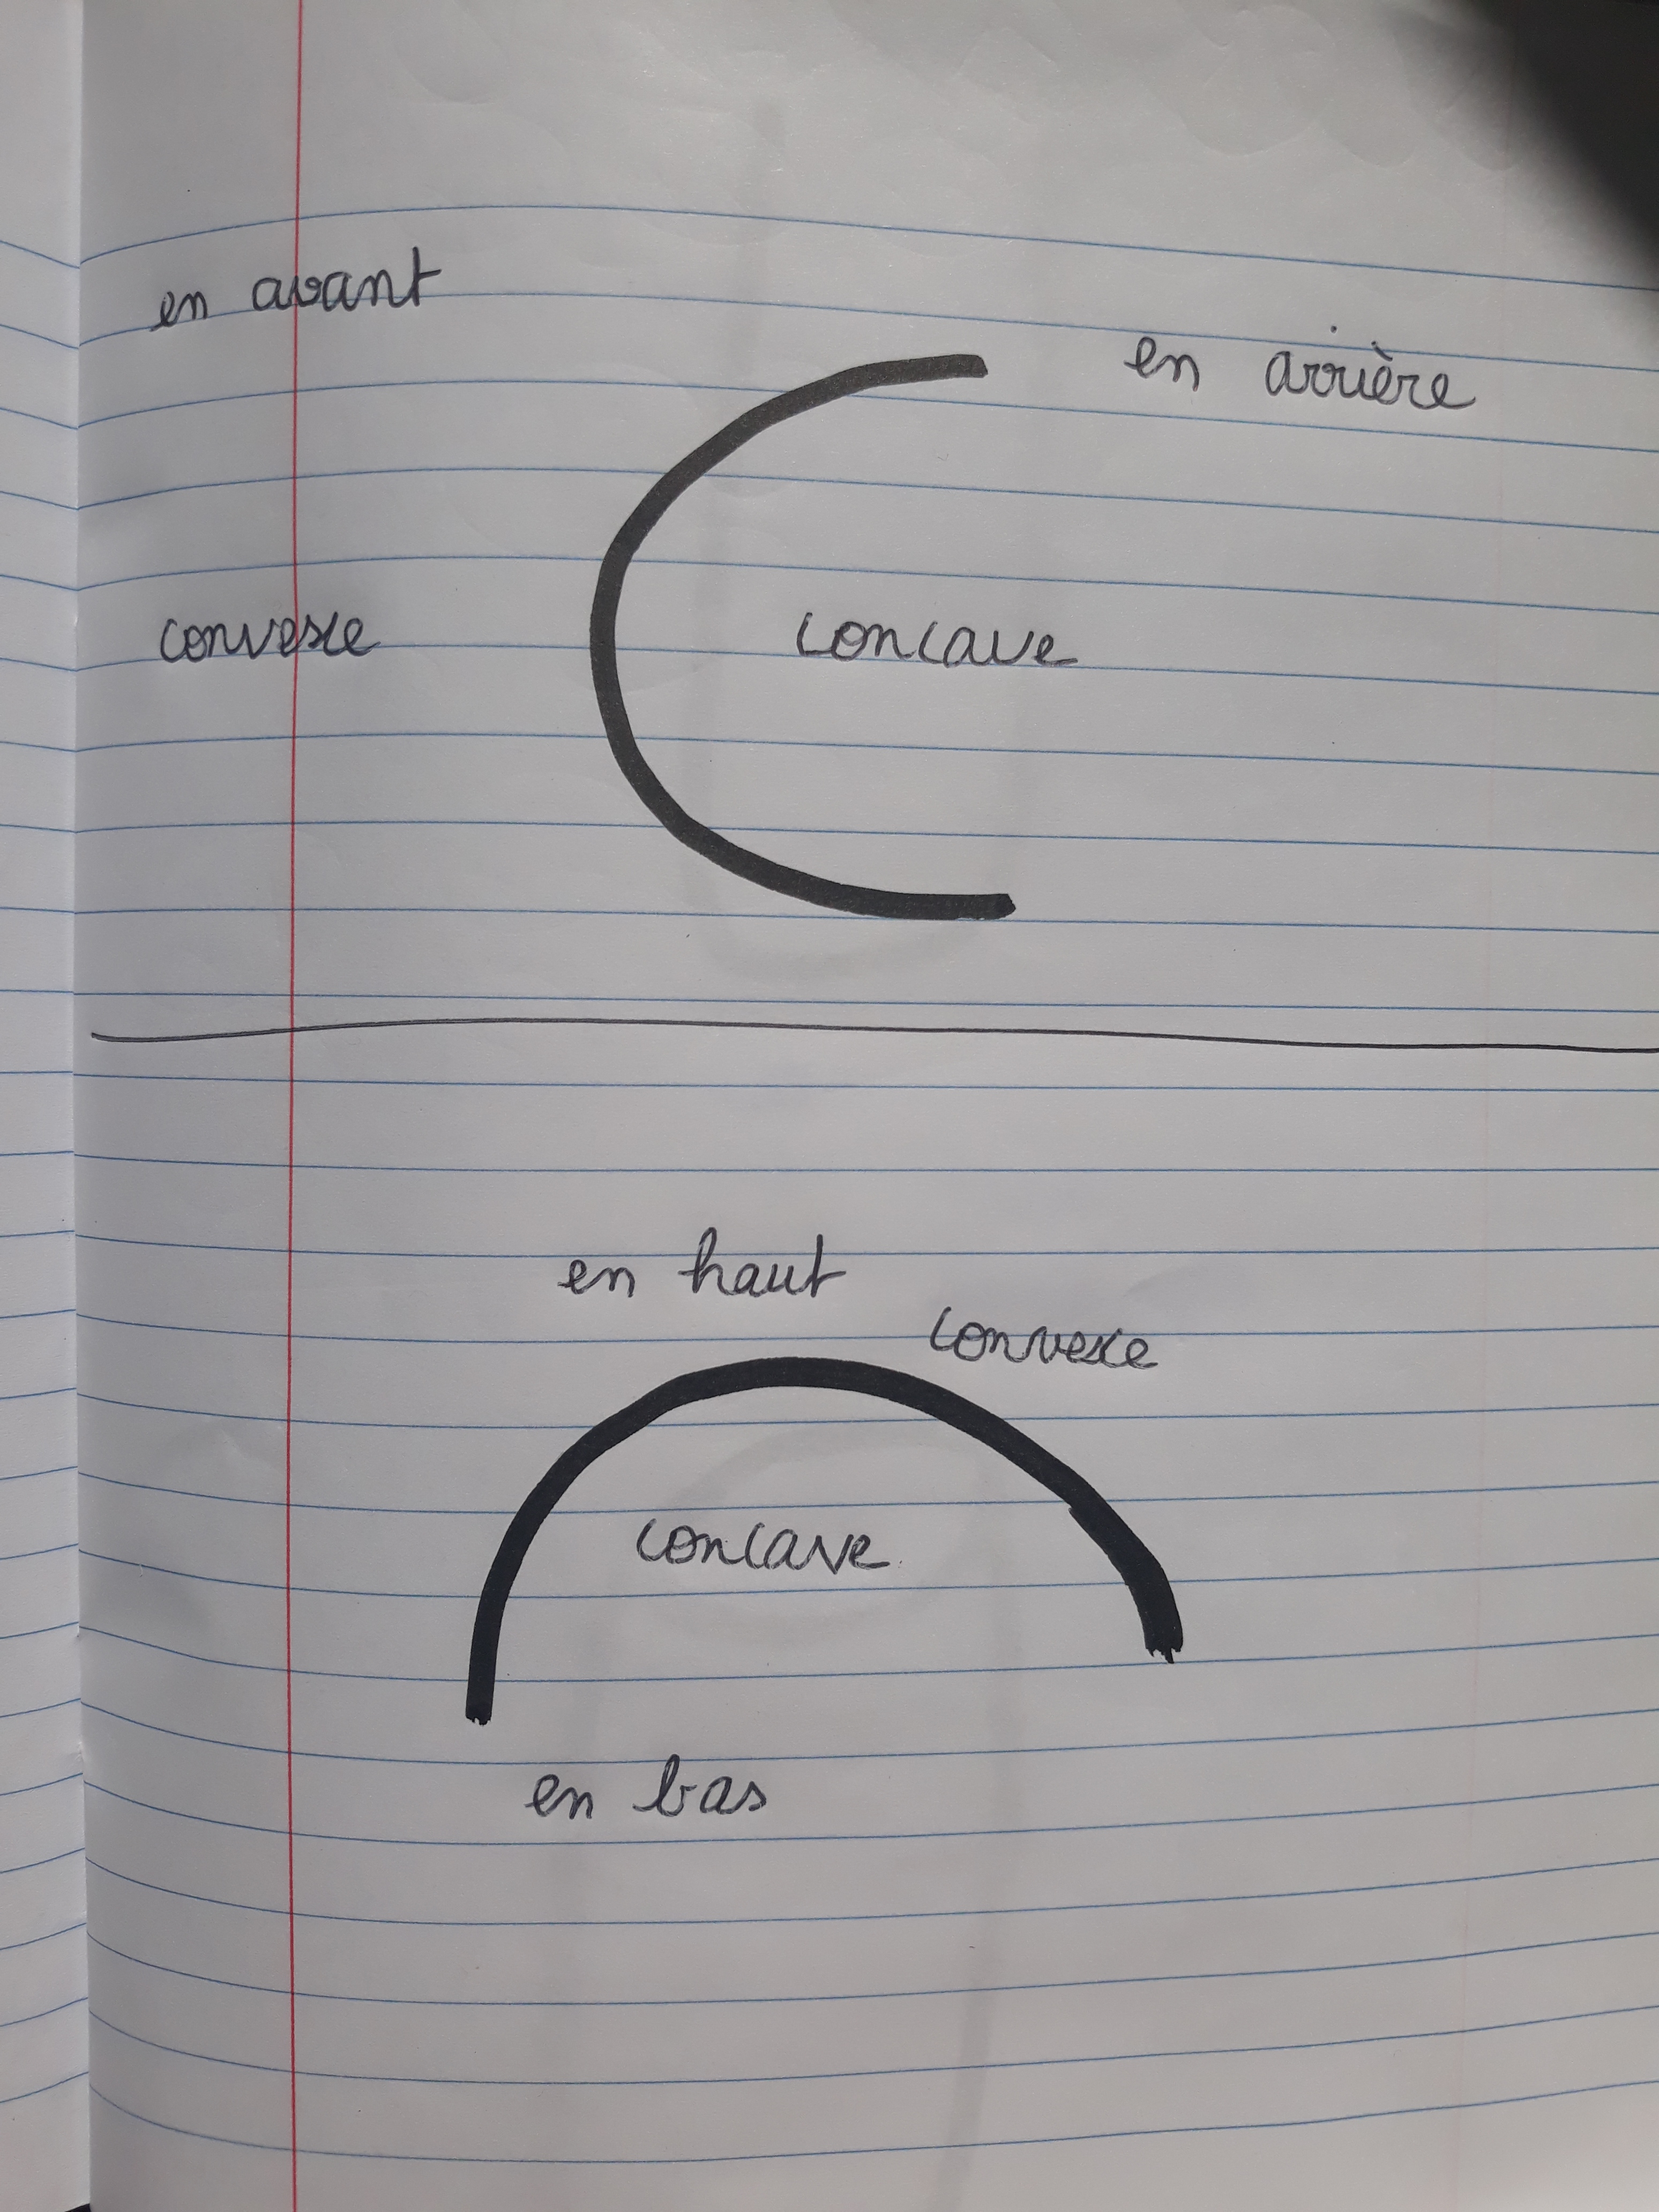 en avant
en arrière
convexe
concave
en haut
convexe
concave
en bas